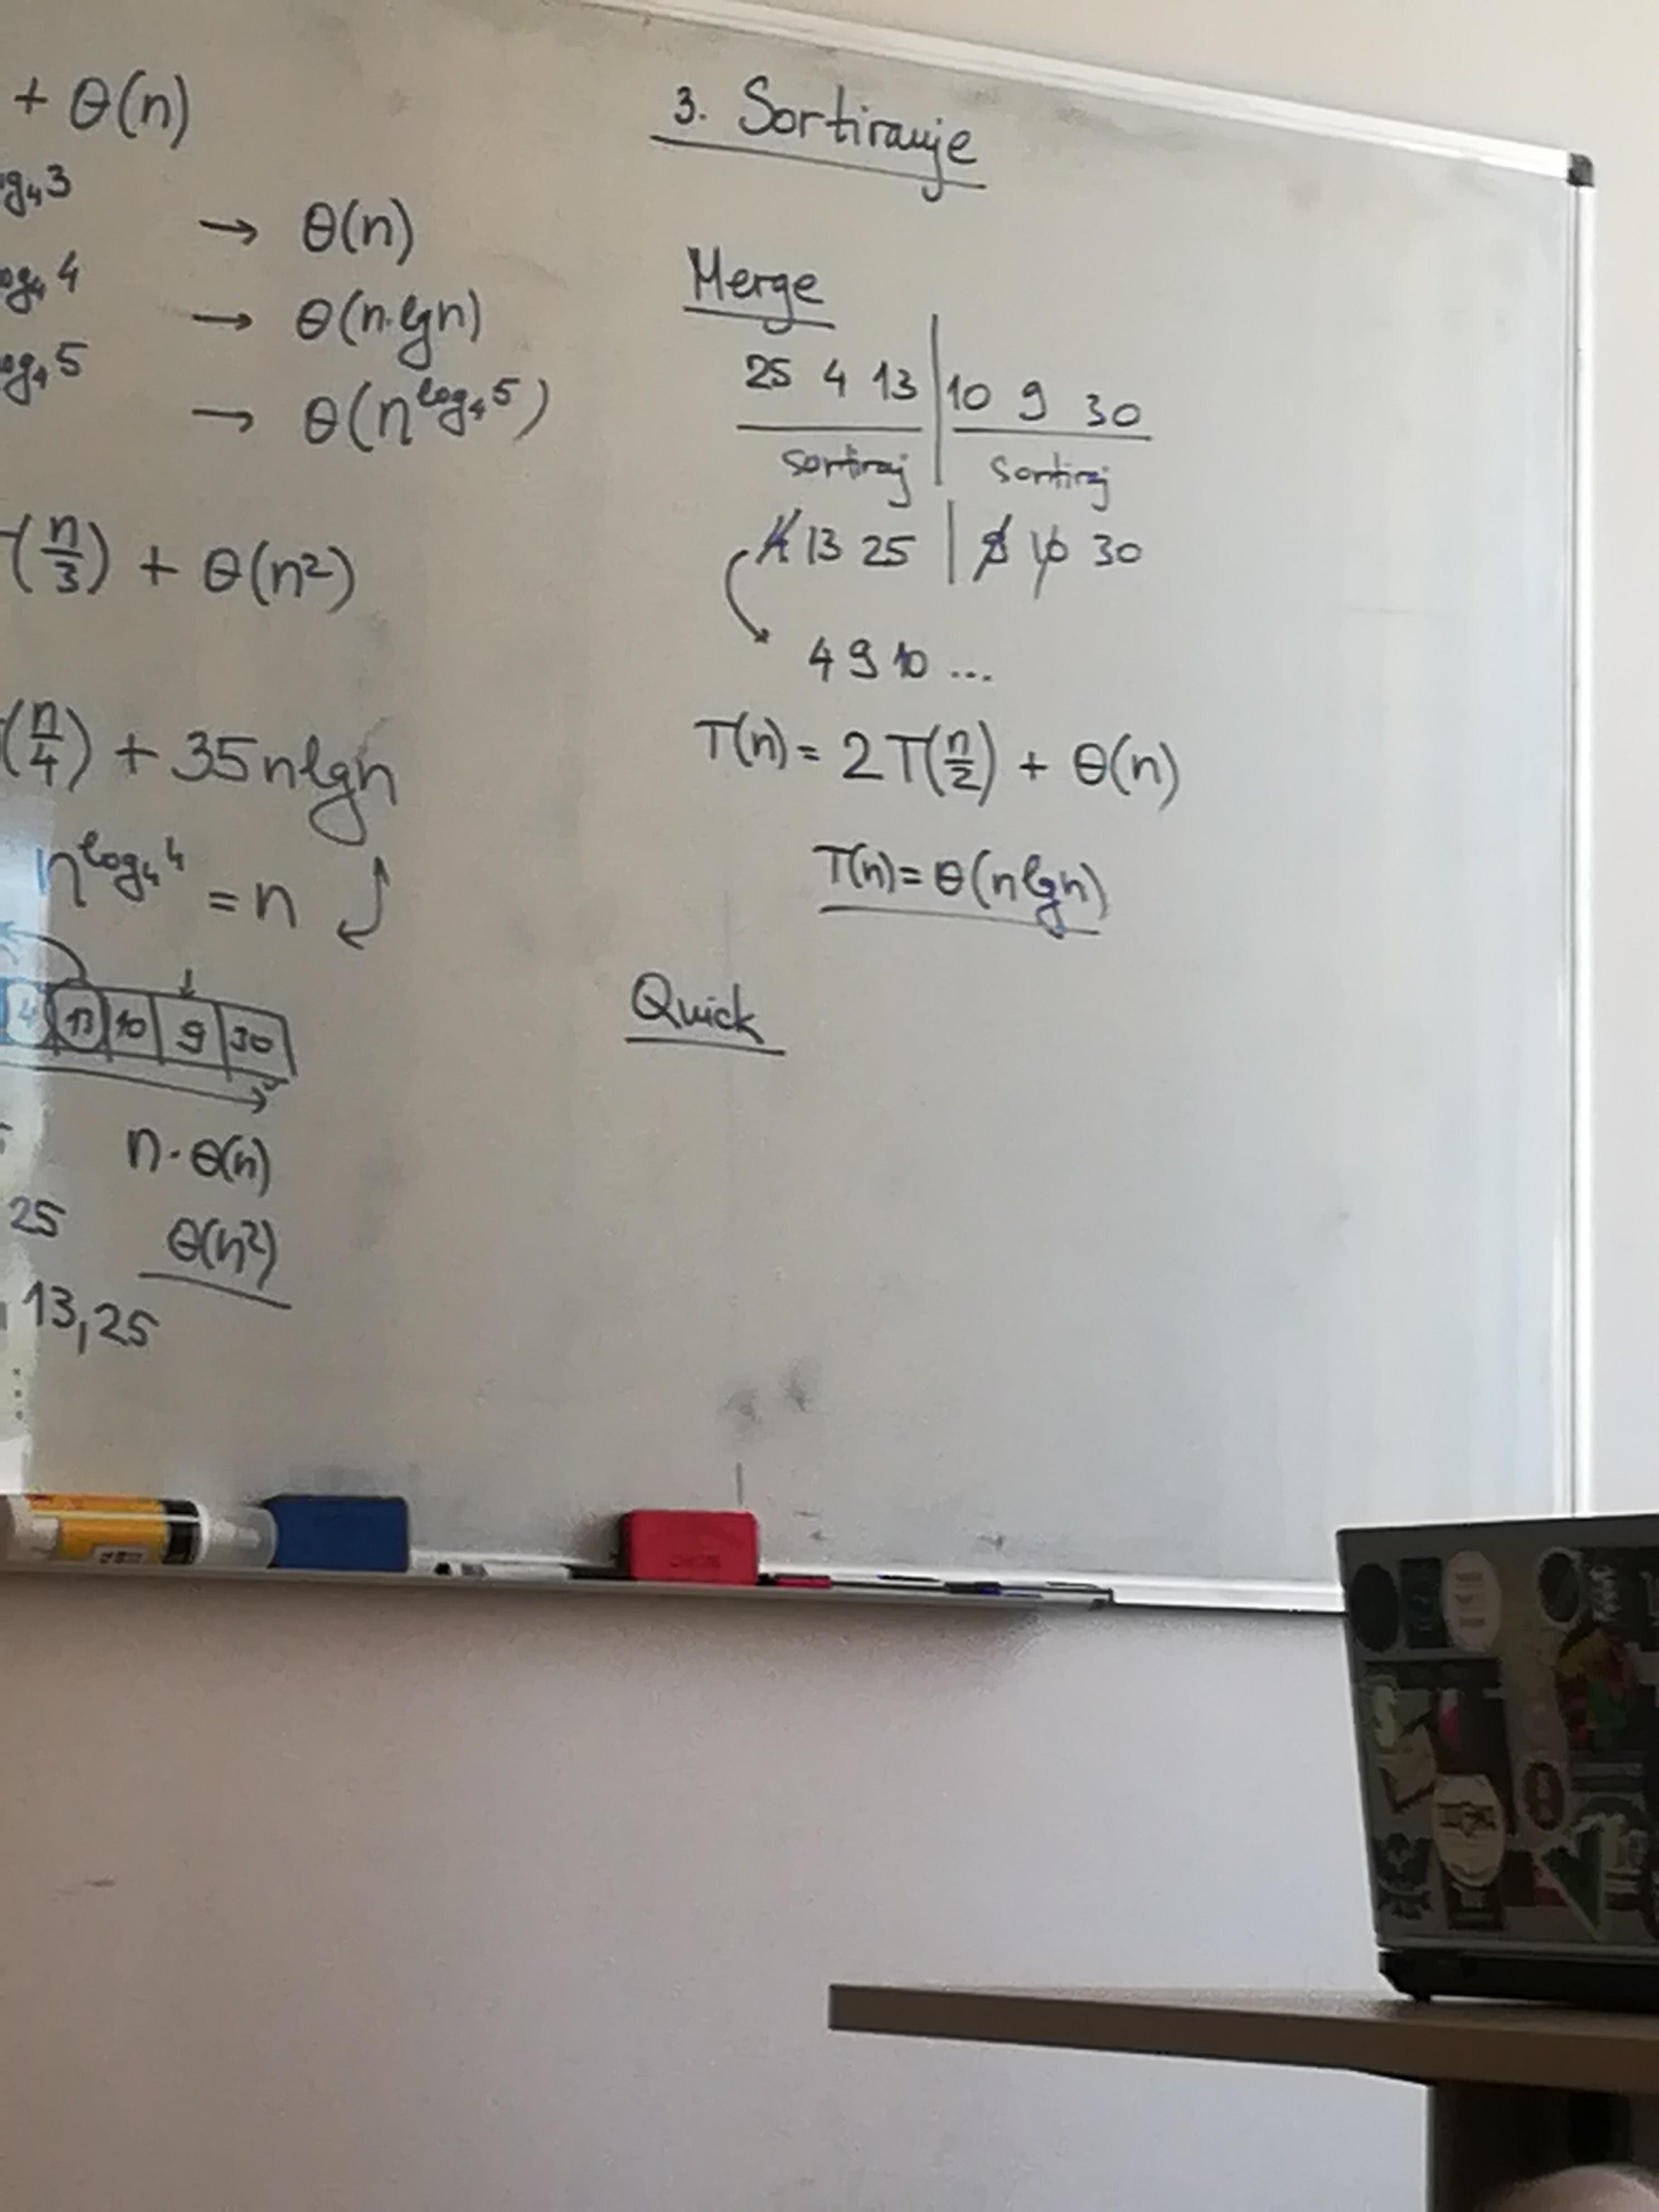 + θ(n)
log₄3 → θ(n)
log₄4 → θ(n·lgn)
log₄5 → θ(n^log₄5)
(n/3) + θ(n²)
(n/4) + 35nlgn
n^log₄4 = n
4 13 10 9 30
n·θ(n)
25
θ(n²)
13,25
3. Sortiranje
Merge
25 4 13 | 10 9 30
sortiraj sortiraj
4 13 25 | 9 10 30
4 9 10 ...
T(n) = 2T(n/2) + θ(n)
T(n) = θ(nlgn)
Quick